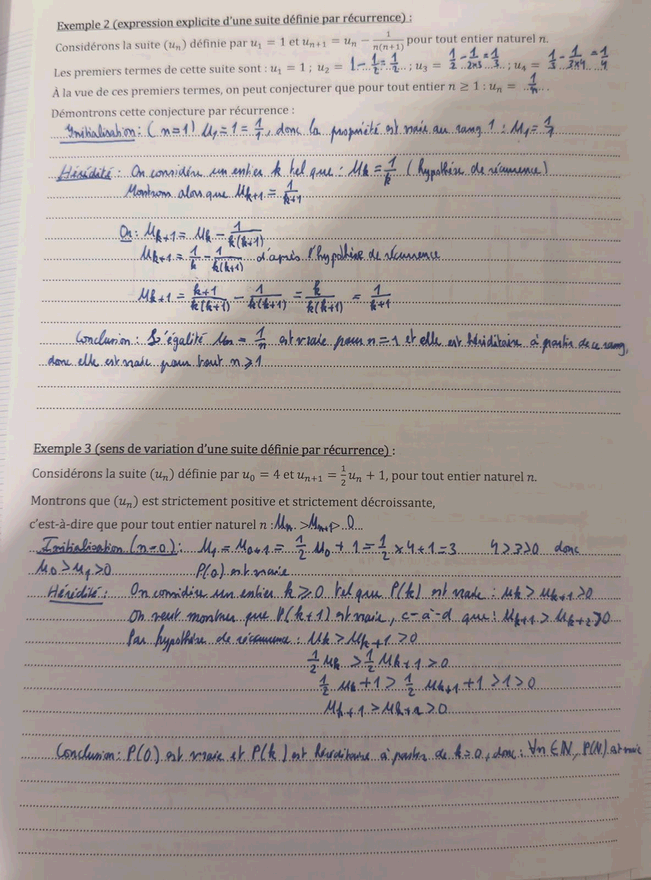 Exemple 2 (expression explicite d'une suite définie par récurrence) :
Considérons la suite (uₙ) définie par u₁ = 1 et uₙ₊₁ = uₙ − 1/(n(n+1)) pour tout entier naturel n.
Les premiers termes de cette suite sont : u₁ = 1 ; u₂ = 1 − 1/2 = 1/2 ; u₃ = 1/2 − 1/(2×3) = 1/3 ; u₄ = 1/3 − 1/(3×4) = 1/4
À la vue de ces premiers termes, on peut conjecturer que pour tout entier n ≥ 1 : uₙ = 1/n
Démontrons cette conjecture par récurrence :
Initialisation : (n=1) u₁ = 1 = 1/1, donc la propriété est vraie au rang 1 : u₁ = 1/1
Hérédité : On considère un entier k tel que : uₖ = 1/k (hypothèse de récurrence)
Montrons alors que uₖ₊₁ = 1/(k+1)
Or : uₖ₊₁ = uₖ − 1/(k(k+1))
uₖ₊₁ = 1/k − 1/(k(k+1)) d'après l'hypothèse de récurrence
uₖ₊₁ = (k+1)/(k(k+1)) − 1/(k(k+1)) = k/(k(k+1)) = 1/(k+1)
Conclusion : L'égalité uₙ = 1/n est vraie pour n = 1 et elle est héréditaire à partir de ce rang,
donc elle est vraie pour tout n ⩾ 1
Exemple 3 (sens de variation d'une suite définie par récurrence) :
Considérons la suite (uₙ) définie par u₀ = 4 et uₙ₊₁ = 1/2 uₙ + 1, pour tout entier naturel n.
Montrons que (uₙ) est strictement positive et strictement décroissante,
c'est-à-dire que pour tout entier naturel n : uₙ > uₙ₊₁ > 0
Initialisation (n=0) : u₁ = u₀₊₁ = 1/2 u₀ + 1 = 1/2 × 4 + 1 = 3 4 > 3 > 0 donc
u₀ > u₁ > 0 P(0) est vraie
Hérédité : On considère un entier k ⩾ 0 tel que P(k) est vraie : uₖ > uₖ₊₁ > 0
On veut montrer que P(k+1) est vraie, c-à-d que : uₖ₊₁ > uₖ₊₂ > 0
Par hypothèse de récurrence : uₖ > uₖ₊₁ > 0
1/2 uₖ > 1/2 uₖ₊₁ > 0
1/2 uₖ + 1 > 1/2 uₖ₊₁ + 1 > 1 > 0
uₖ₊₁ > uₖ₊₂ > 0
Conclusion : P(0) est vraie et P(k) est héréditaire à partir de k = 0, donc : ∀n ∈ ℕ, P(N) est vraie